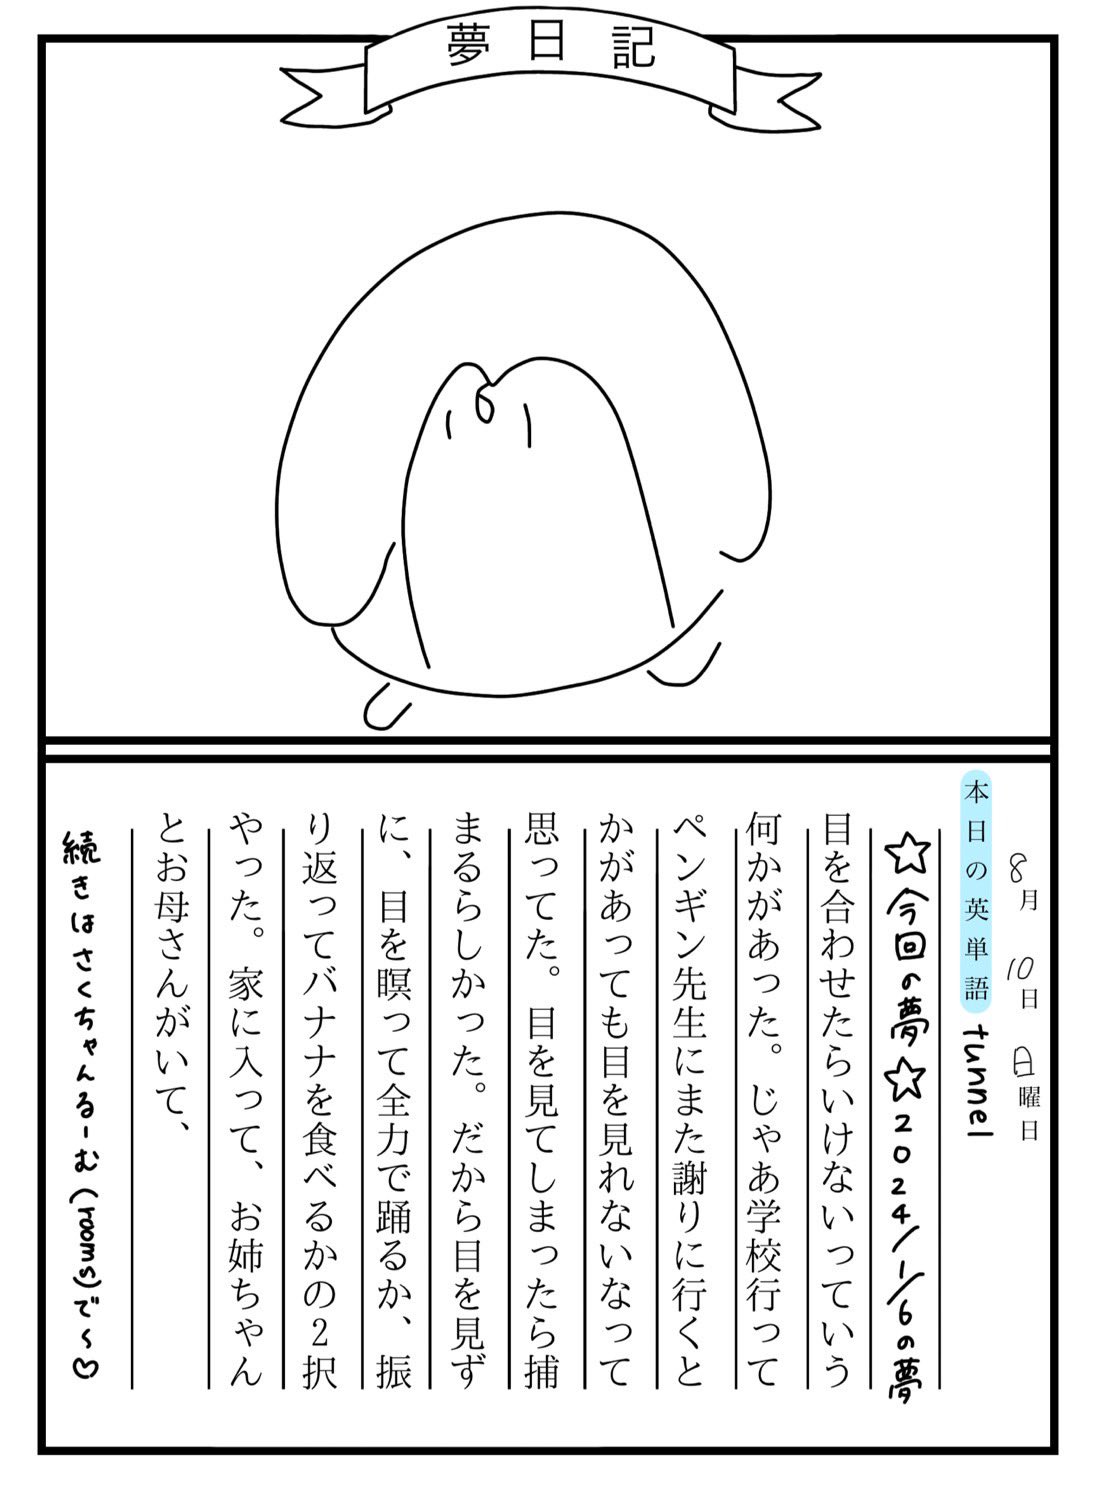 夢日記
8月 10日 日曜日
本日の英単語 tunnel
☆今回の夢☆2024/1/6の夢
目を合わせたらいけないっていう
何かがあった。じゃあ学校行って
ペンギン先生にまた謝りに行くと
かがあっても目を見れないなって
思ってた。目を見てしまったら捕
まるらしかった。だから目を見ず
に、目を瞑って全力で踊るか、振
り返ってバナナを食べるかの2択
やった。家に入って、お姉ちゃん
とお母さんがいて、
続きはさくちゃんるーむ(rooms)で〜♡